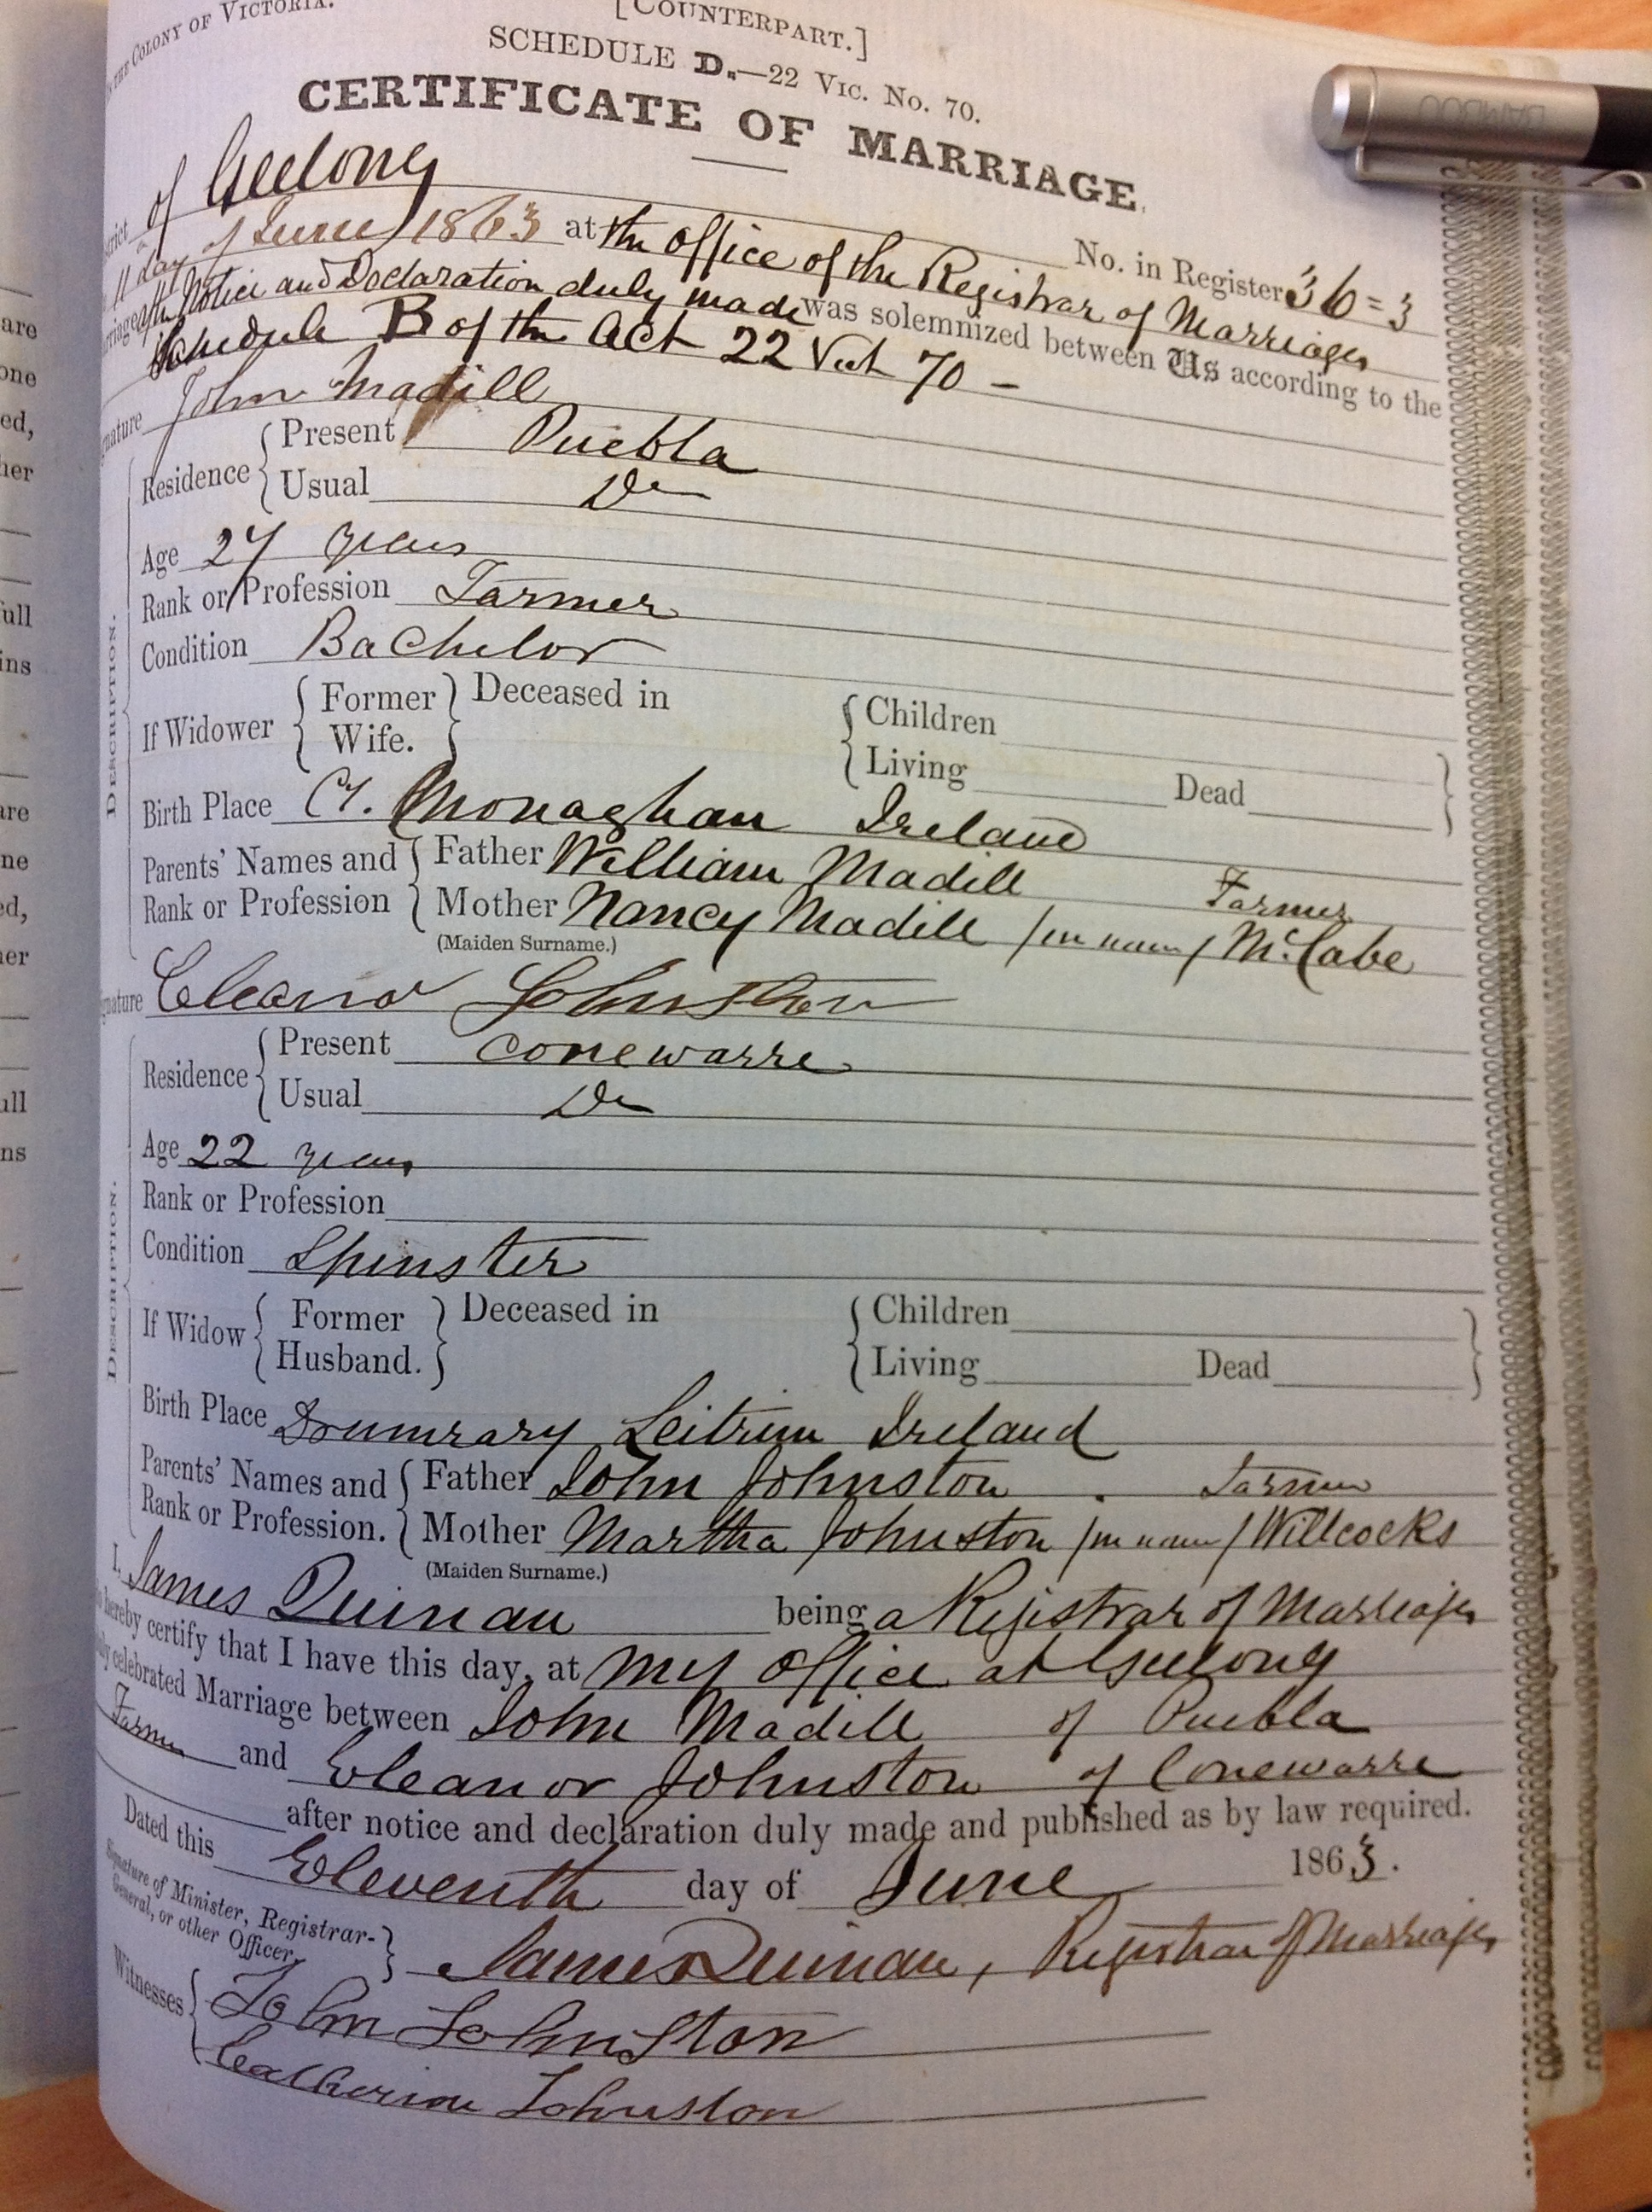 THE COLONY OF VICTORIA.
[COUNTERPART.]
SCHEDULE D.—22 VIC. No. 70.
CERTIFICATE OF MARRIAGE.
of Geelong
No. in Register 36=3
11th day of June 1863 at the Office of the Registrar of Marriages
after Notice and Declaration duly made was solemnized between Us according to the
Schedule B of the Act 22 Vict 70 -
John Madill
Residence { Present Puebla
Usual Do
Age 27 years
Rank or Profession Farmer
Condition Bachelor
DESCRIPTION.
If Widower { Former Wife. } Deceased in { Children
Living Dead }
Birth Place Cy. Monaghan Ireland
Parents' Names and { Father William Madill Farmer
Rank or Profession { Mother Nancy Madill /m name/ McCabe
(Maiden Surname.)
Eleanor Johnston
Residence { Present Conewarre
Usual Do
Age 22 years
Rank or Profession
Condition Spinster
DESCRIPTION.
If Widow { Former Husband. } Deceased in { Children
Living Dead }
Birth Place Drumrary Leitrim Ireland
Parents' Names and { Father John Johnston . Farmer
Rank or Profession. { Mother Martha Johnston /m name/ Willcocks
(Maiden Surname.)
I, James Quinan being a Registrar of Marriages
hereby certify that I have this day, at my Office at Geelong
duly celebrated Marriage between John Madill of Puebla
Farmer and Eleanor Johnston of Conewarre
after notice and declaration duly made and published as by law required.
Dated this Eleventh day of June 1863.
Signature of Minister, Registrar-
General, or other Officer, } James Quinan, Registrar of Marriages
Witnesses { John Johnston
Catherine Johnston